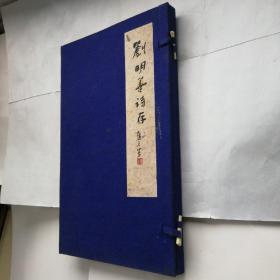 劉明善詩存